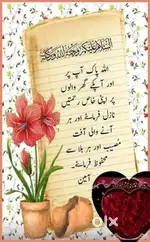 السلام علیکم ورحمۃ اللہ وبرکاتہ
اللہ پاک آپ پر
اور آپکے گھر والوں
پر اپنی خاص رحمتیں
نازل فرمائے اور ہر
آنے والی آفت
مصیبت اور ہر بلا سے
محفوظ فرمائے۔
آمین